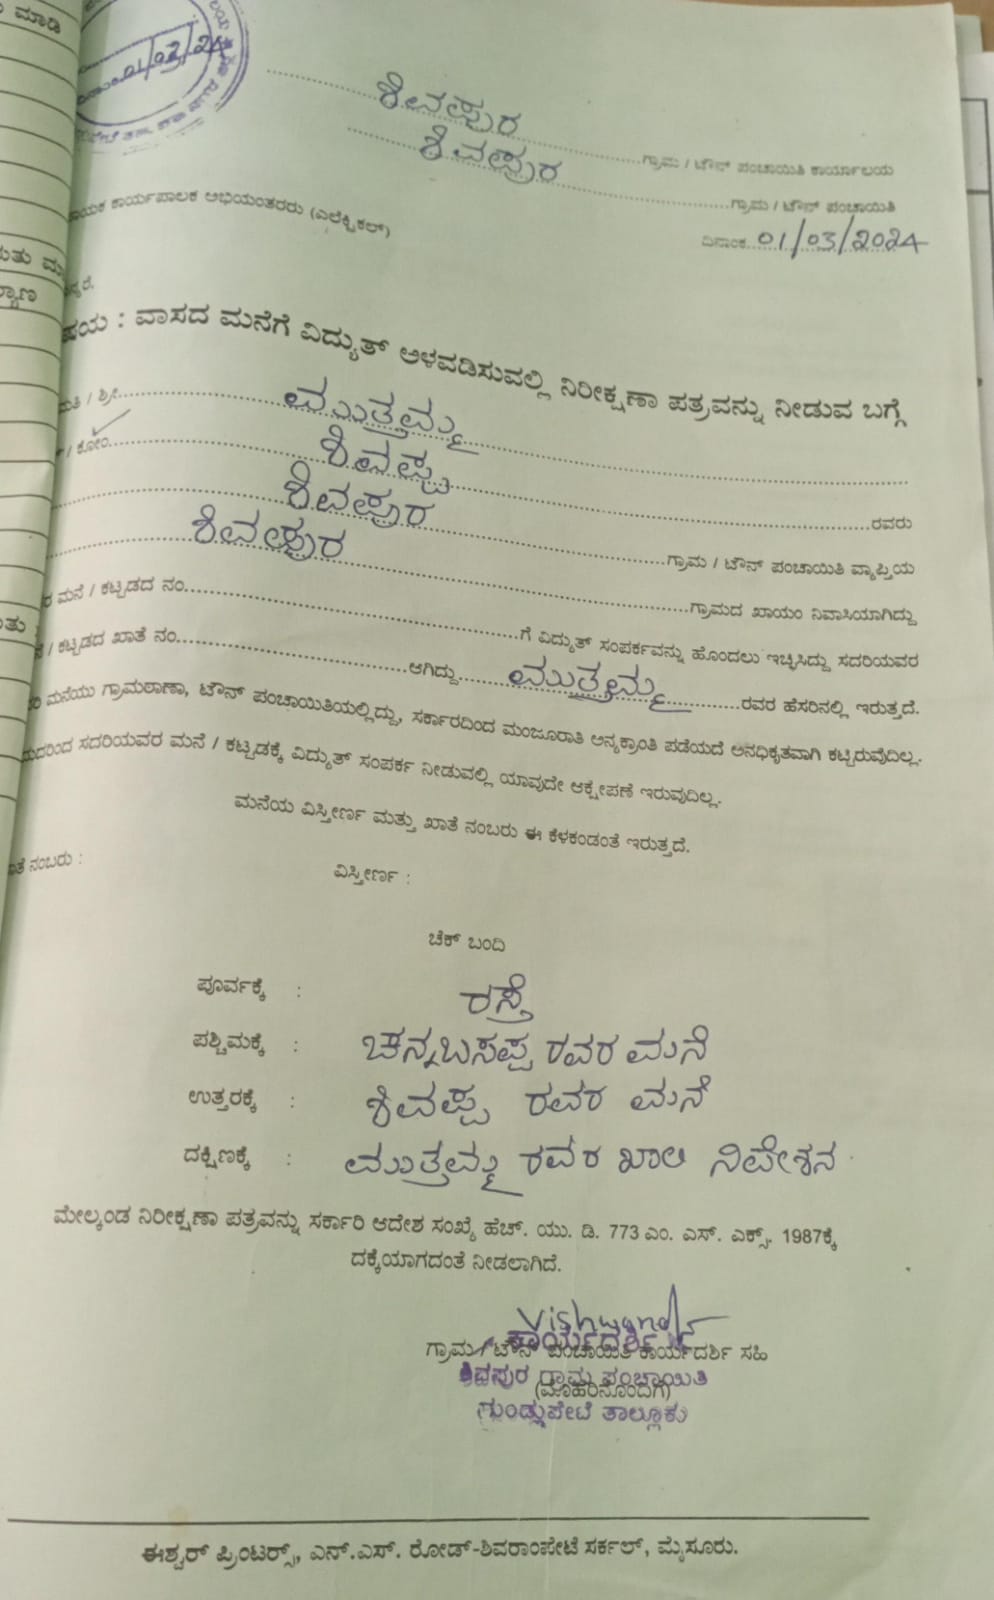 ಮಾಡಿ
01/03/24
ಶಿವಪುರ ಗ್ರಾಮ / ಟೌನ್ ಪಂಚಾಯಿತಿ ಕಾರ್ಯಾಲಯ
ಶಿವಪುರ ಗ್ರಾಮ / ಟೌನ್ ಪಂಚಾಯಿತಿ
ದಿನಾಂಕ 01/03/2024
ಕಾರ್ಯಪಾಲಕ ಅಭಿಯಂತರರು (ಎಲೆಕ್ಟ್ರಿಕಲ್)
: ವಾಸದ ಮನೆಗೆ ವಿದ್ಯುತ್ ಅಳವಡಿಸುವಲ್ಲಿ ನಿರೀಕ್ಷಣಾ ಪತ್ರವನ್ನು ನೀಡುವ ಬಗ್ಗೆ
/ ಶ್ರೀ ಮುತ್ತಮ್ಮ
/ ಕೋಂ ಶಿವಪ್ಪ ರವರು
ಶಿವಪುರ ಗ್ರಾಮ / ಟೌನ್ ಪಂಚಾಯಿತಿ ವ್ಯಾಪ್ತಿಯ
ಶಿವಪುರ ಗ್ರಾಮದ ಖಾಯಂ ನಿವಾಸಿಯಾಗಿದ್ದು
ಮನೆ / ಕಟ್ಟಡದ ನಂ. ಗೆ ವಿದ್ಯುತ್ ಸಂಪರ್ಕವನ್ನು ಹೊಂದಲು ಇಚ್ಛಿಸಿದ್ದು ಸದರಿಯವರ
/ ಕಟ್ಟಡದ ಖಾತೆ ನಂ. ಆಗಿದ್ದು ಮುತ್ತಮ್ಮ ರವರ ಹೆಸರಿನಲ್ಲಿ ಇರುತ್ತದೆ.
ಮನೆಯು ಗ್ರಾಮಠಾಣಾ, ಟೌನ್ ಪಂಚಾಯಿತಿಯಲ್ಲಿದ್ದು, ಸರ್ಕಾರದಿಂದ ಮಂಜೂರಾತಿ ಅನ್ಯಕ್ರಾಂತಿ ಪಡೆಯದೆ ಅನಧಿಕೃತವಾಗಿ ಕಟ್ಟಿರುವುದಿಲ್ಲ.
ಸದರಿಯವರ ಮನೆ / ಕಟ್ಟಡಕ್ಕೆ ವಿದ್ಯುತ್ ಸಂಪರ್ಕ ನೀಡುವಲ್ಲಿ ಯಾವುದೇ ಆಕ್ಷೇಪಣೆ ಇರುವುದಿಲ್ಲ.
ಮನೆಯ ವಿಸ್ತೀರ್ಣ ಮತ್ತು ಖಾತೆ ನಂಬರು ಈ ಕೆಳಕಂಡಂತೆ ಇರುತ್ತದೆ.
ನಂಬರು : ವಿಸ್ತೀರ್ಣ :
ಚೆಕ್ ಬಂದಿ
ಪೂರ್ವಕ್ಕೆ : ರಸ್ತೆ
ಪಶ್ಚಿಮಕ್ಕೆ : ಚನ್ನಬಸಪ್ಪ ರವರ ಮನೆ
ಉತ್ತರಕ್ಕೆ : ಶಿವಪ್ಪ ರವರ ಮನೆ
ದಕ್ಷಿಣಕ್ಕೆ : ಮುತ್ತಮ್ಮ ರವರ ಖಾಲಿ ನಿವೇಶನ
ಮೇಲ್ಕಂಡ ನಿರೀಕ್ಷಣಾ ಪತ್ರವನ್ನು ಸರ್ಕಾರಿ ಆದೇಶ ಸಂಖ್ಯೆ ಹೆಚ್. ಯು. ಡಿ. 773 ಎಂ. ಎಸ್. ಎಕ್ಸ್. 1987ಕ್ಕೆ
ದಕ್ಕೆಯಾಗದಂತೆ ನೀಡಲಾಗಿದೆ.
ಕಾರ್ಯದರ್ಶಿ
ಗ್ರಾಮ / ಟೌನ್ ಪಂಚಾಯಿತಿ ಕಾರ್ಯದರ್ಶಿ ಸಹಿ
ಶಿವಪುರ ಗ್ರಾಮ ಪಂಚಾಯಿತಿ
(ಮೊಹರಿನೊಂದಿಗೆ)
ಗುಂಡ್ಲುಪೇಟೆ ತಾಲ್ಲೂಕು
ಈಶ್ವರ್ ಪ್ರಿಂಟರ್ಸ್, ಎನ್.ಎಸ್. ರೋಡ್-ಶಿವರಾಂಪೇಟೆ ಸರ್ಕಲ್, ಮೈಸೂರು.